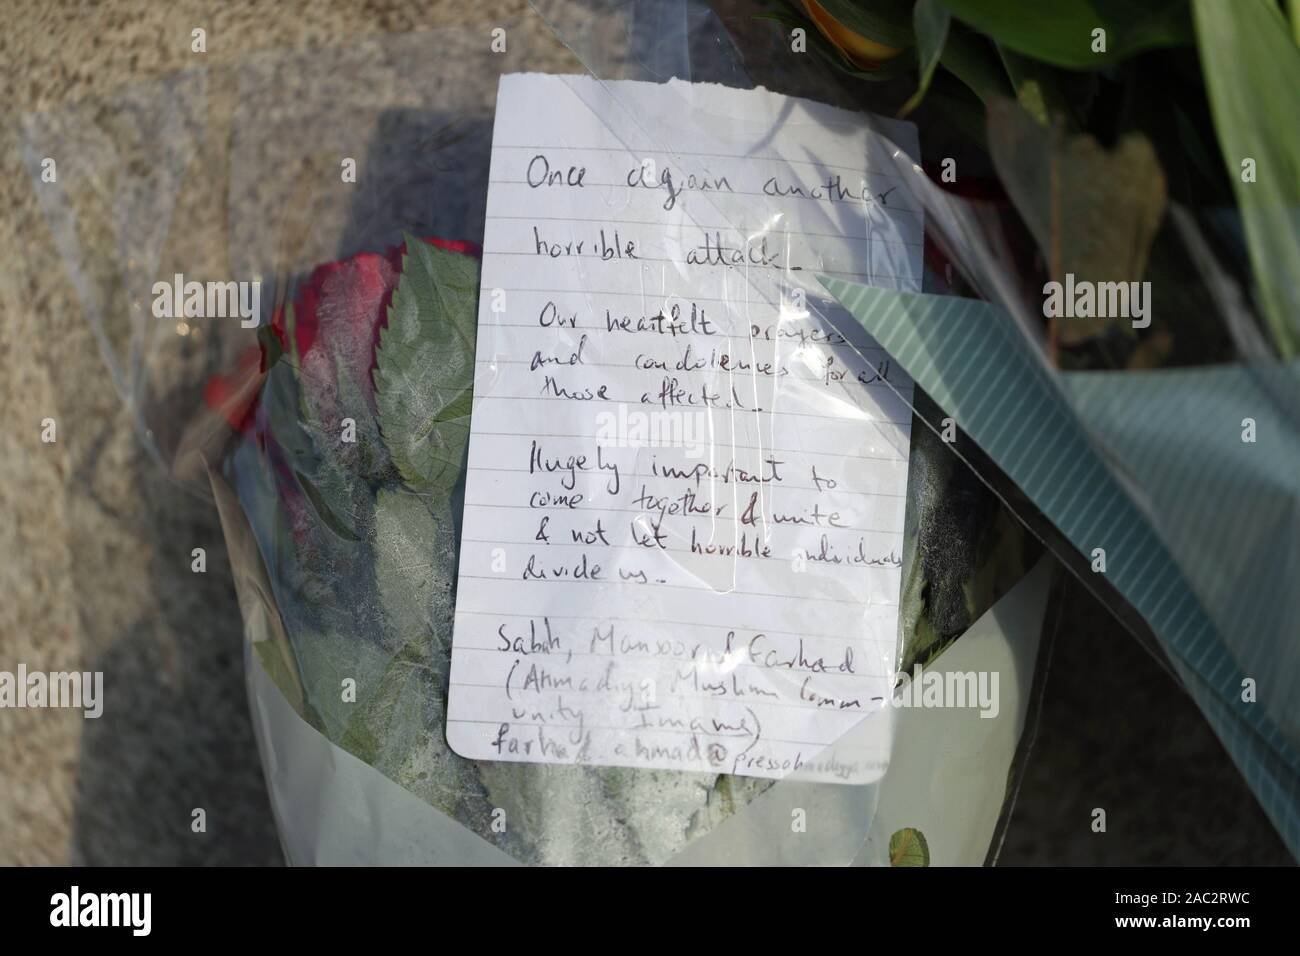 Once again another
horrible attack.
Our heartfelt prayers
and condolences for all
those affected.
Hugely important to
come together & unite
& not let horrible individuals
divide us.
Sabah, Mansoor & Farhad
(Ahmadiyya Muslim Comm-
unity Imams)
farhad.ahmad@pressahmadiyya
alamy
Image ID: 2AC2RWC
www.alamy.com